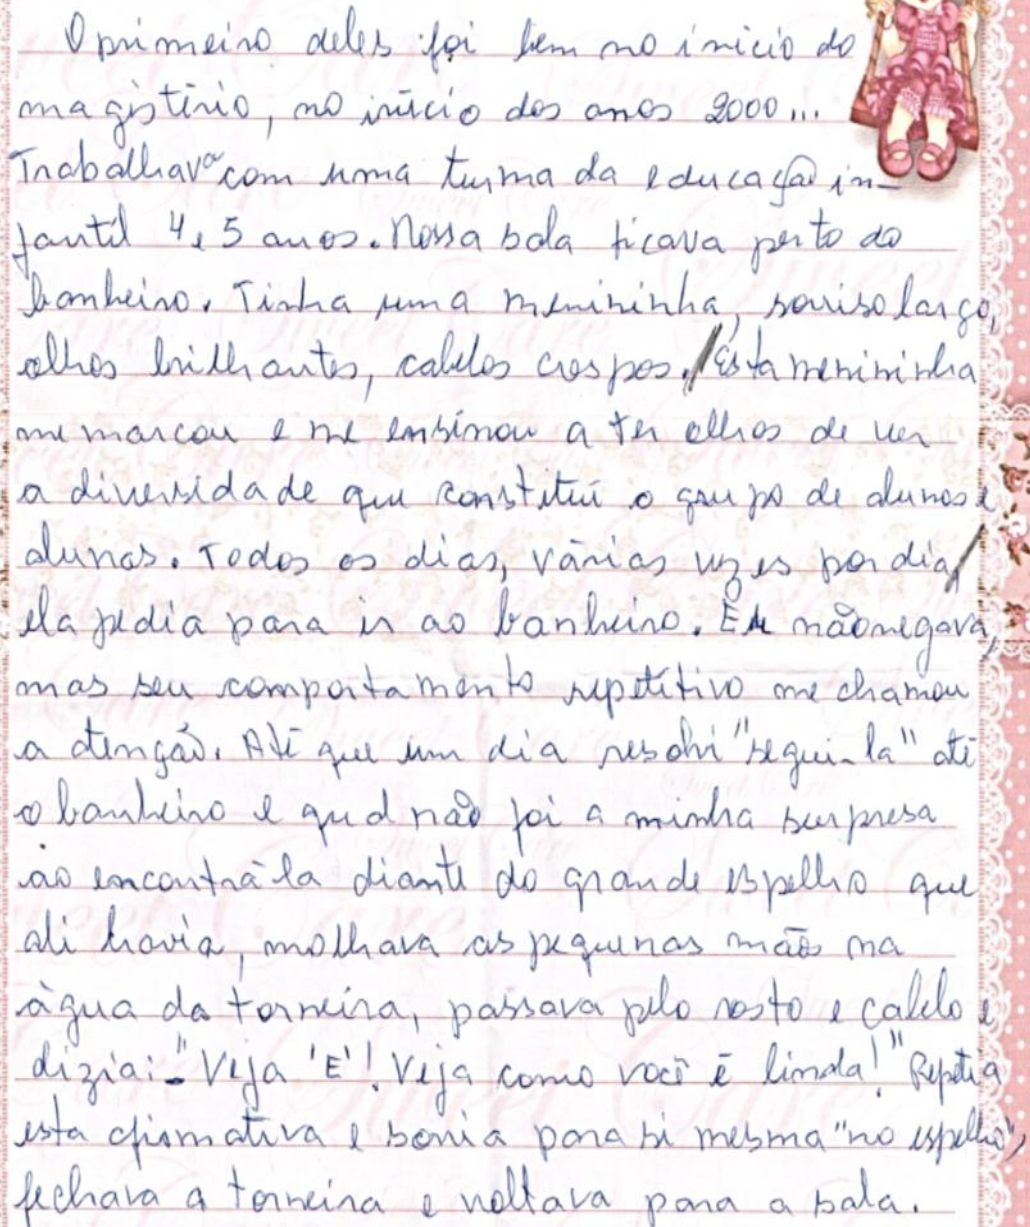 O primeiro deles foi bem no início do
magistério, no início dos anos 2000...
Trabalhava com uma turma da educação in-
fantil 4 e 5 anos. Nossa sala ficava perto do
banheiro. Tinha uma menininha, sorriso largo,
olhos brilhantes, cabelos crespos. Esta menininha
me marcou e me ensinou a ter olhos de ver
a diversidade que constitui o grupo de alunos e
alunas. Todos os dias, várias vezes por dia,
ela pedia para ir ao banheiro. Eu não negava,
mas seu comportamento repetitivo me chamou
a atenção. Até que um dia resolvi "segui-la" até
o banheiro e qual não foi a minha surpresa
ao encontrá-la diante do grande espelho que
ali havia, molhava as pequenas mãos na
água da torneira, passava pelo rosto e cabelo e
dizia: - "Veja 'E'! Veja como você é linda!" Repetia
esta afirmativa e sorria para si mesma "no espelho",
fechava a torneira e voltava para a sala.